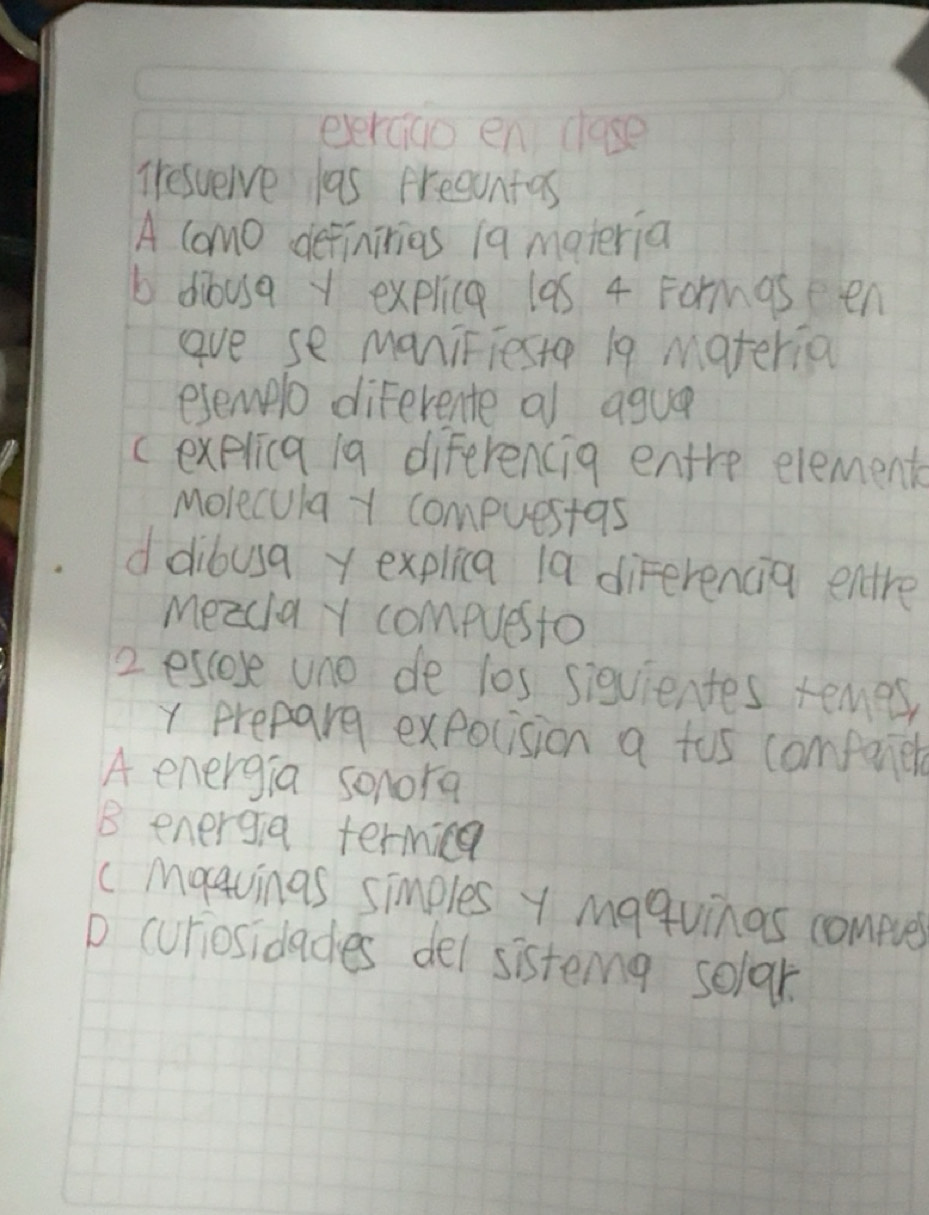 ejercicio en clase
1 resuelve las preguntas
A como definirias la materia
b dibusa y explica las 4 Formas en
que se maniFiesta la materia
esemplo diFerente al agua
c explica la diFerencia entre element
molecula y compuestas
d dibusa y explica la diFerencia entre
mezcla y compuesto
2 escoje uno de los siguientes temas,
y prepara expocision a tus compañer
A energía sonora
B energía termica
C maquinas simples y maquinas compues
D curiosidades del sistema solar.